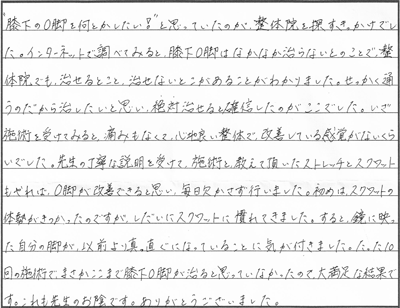 膝下のO脚を何とかしたい!!”と思っていたのが、整体院を探すきっかけでし
た。インターネットで調べてみると、膝下O脚はなかなか治らないとのことで、整
体院でも、治せるとこと、治せないとこがあることがわかりました。せっかく通
うのだから治したいと思い、絶対治せると確信したのがここでした。いざ
施術を受けてみると、痛みもなくて、心地良い整体で、改善している感覚がないくら
いでした。先生の丁寧な説明を受けて、施術と、教えて頂いたストレッチとスクワット
もやれば、O脚が改善できると思い、毎日欠かさず行いました。初めは、スクワットの
体勢がきつかったのですが、しだいにスクワットに慣れてきました。すると、鏡に映っ
た自分の脚が、以前より真っ直ぐになっていることに気が付きました。たった10
回の施術でまさかここまで膝下O脚が治ると思っていなかったので、大満足な結果で
す。これも先生のお陰です。ありがとうございました。